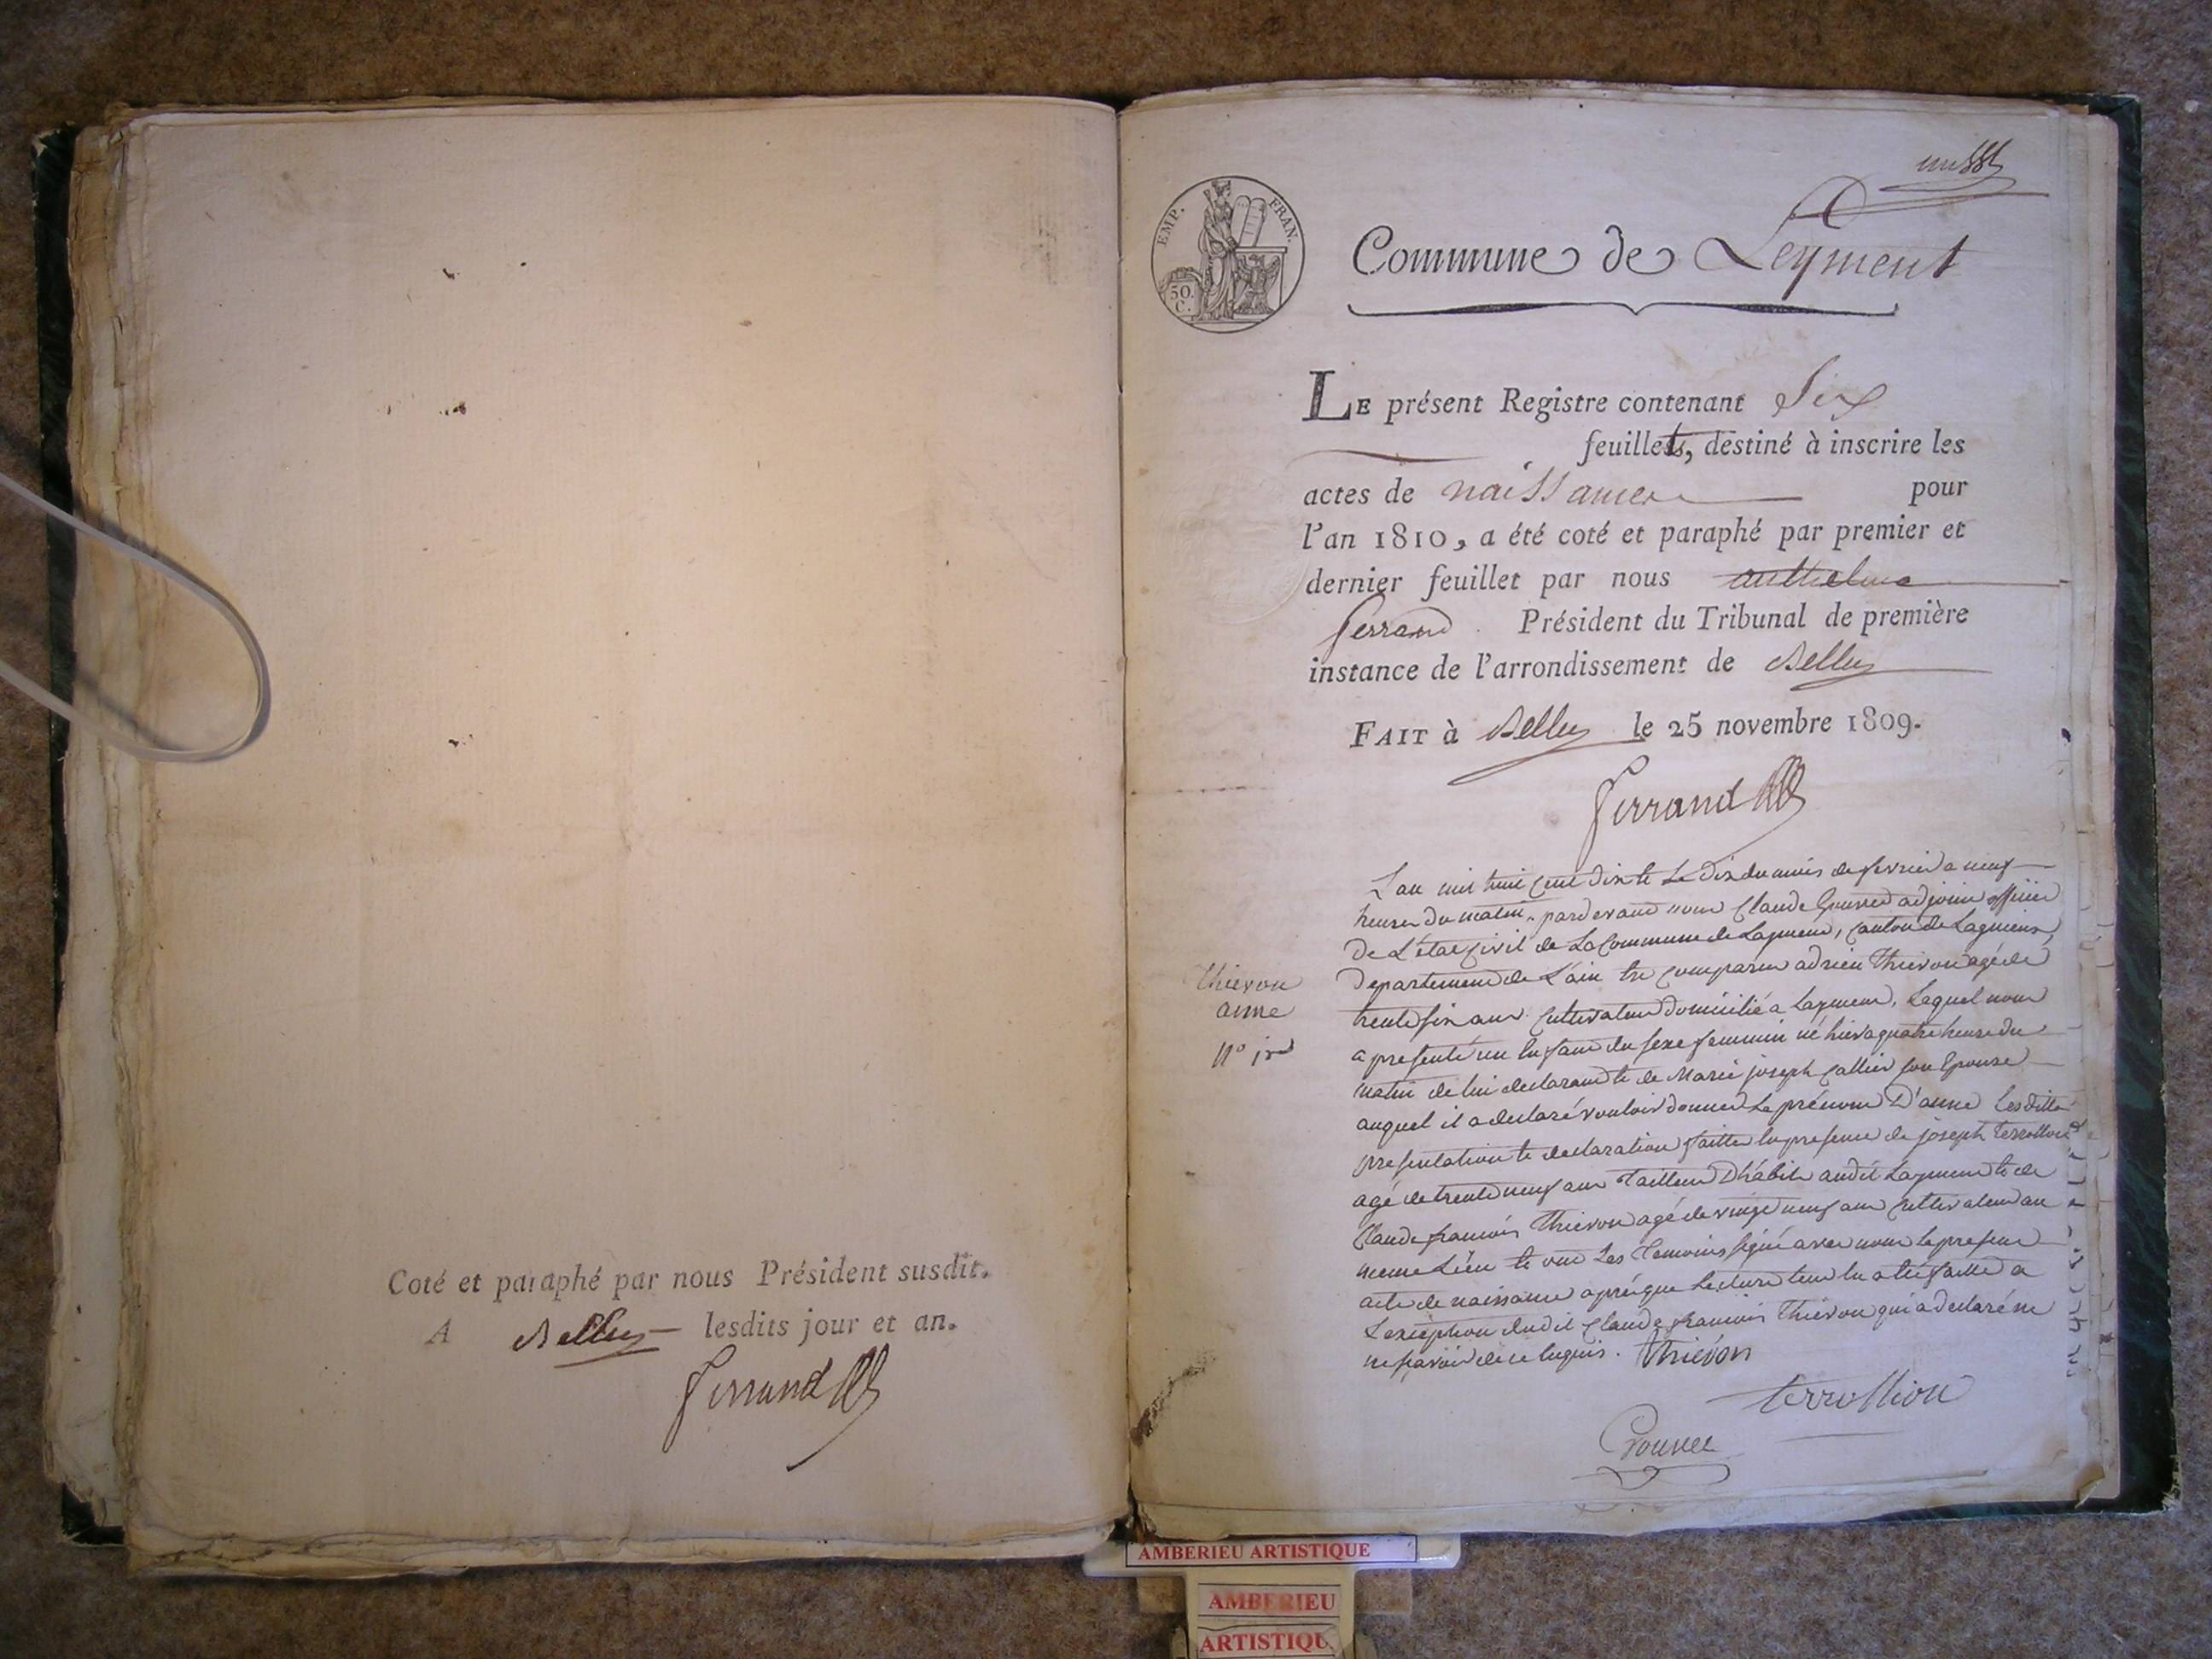 Coté et paraphé par nous Président susdit.
A Belley lesdits jour et an.
Ferrand
EMP. FRAN.
50.
C.
Commune de Leyment
LE présent Registre contenant Six
feuillets, destiné à inscrire les
actes de naissance pour
l'an 1810, a été coté et paraphé par premier et
dernier feuillet par nous anthelme
ferrand Président du Tribunal de première
instance de l'arrondissement de Belley
FAIT à Belley le 25 novembre 1809.
Ferrand
Thievon
anne
N° 1er
L'an mil huit cent dix et le dix du mois de fevrier a neuf
heures du matin, pardevant nous Claude Gouvet adjoint officier
De L'état Civil de La Commune de Layment, Canton de Lagnieux,
Departement de L'ain est comparu adrien Thievon agé de
trente six ans cultivateur domicilié a Layment, Lequel nous
a presenté un Enfant du sexe feminin né hier a quatre heure du
matin de lui declarant et de Marie joseph Callier son Epouse
auquel il a declaré vouloir donner Le prénom D'anne Lesdittes
presentation et declaration faittes En presence de joseph terrollion
agé de trente neuf ans Tailleur D'habits audit Layment et de
Claude francois Thievon agé de vingt neuf ans Cultivateur au
meme Lieu et ont Les Temoins signé avec nous le present
acte de naissance aprés que Lecture leur En a été faitte a
L'exception dudit Claude francois Thievon qui a declaré ne
ne savoir de ce Enquis. Thiévon
terrollion
Gouvet
AMBERIEU ARTISTIQUE
AMBERIEU
ARTISTIQU